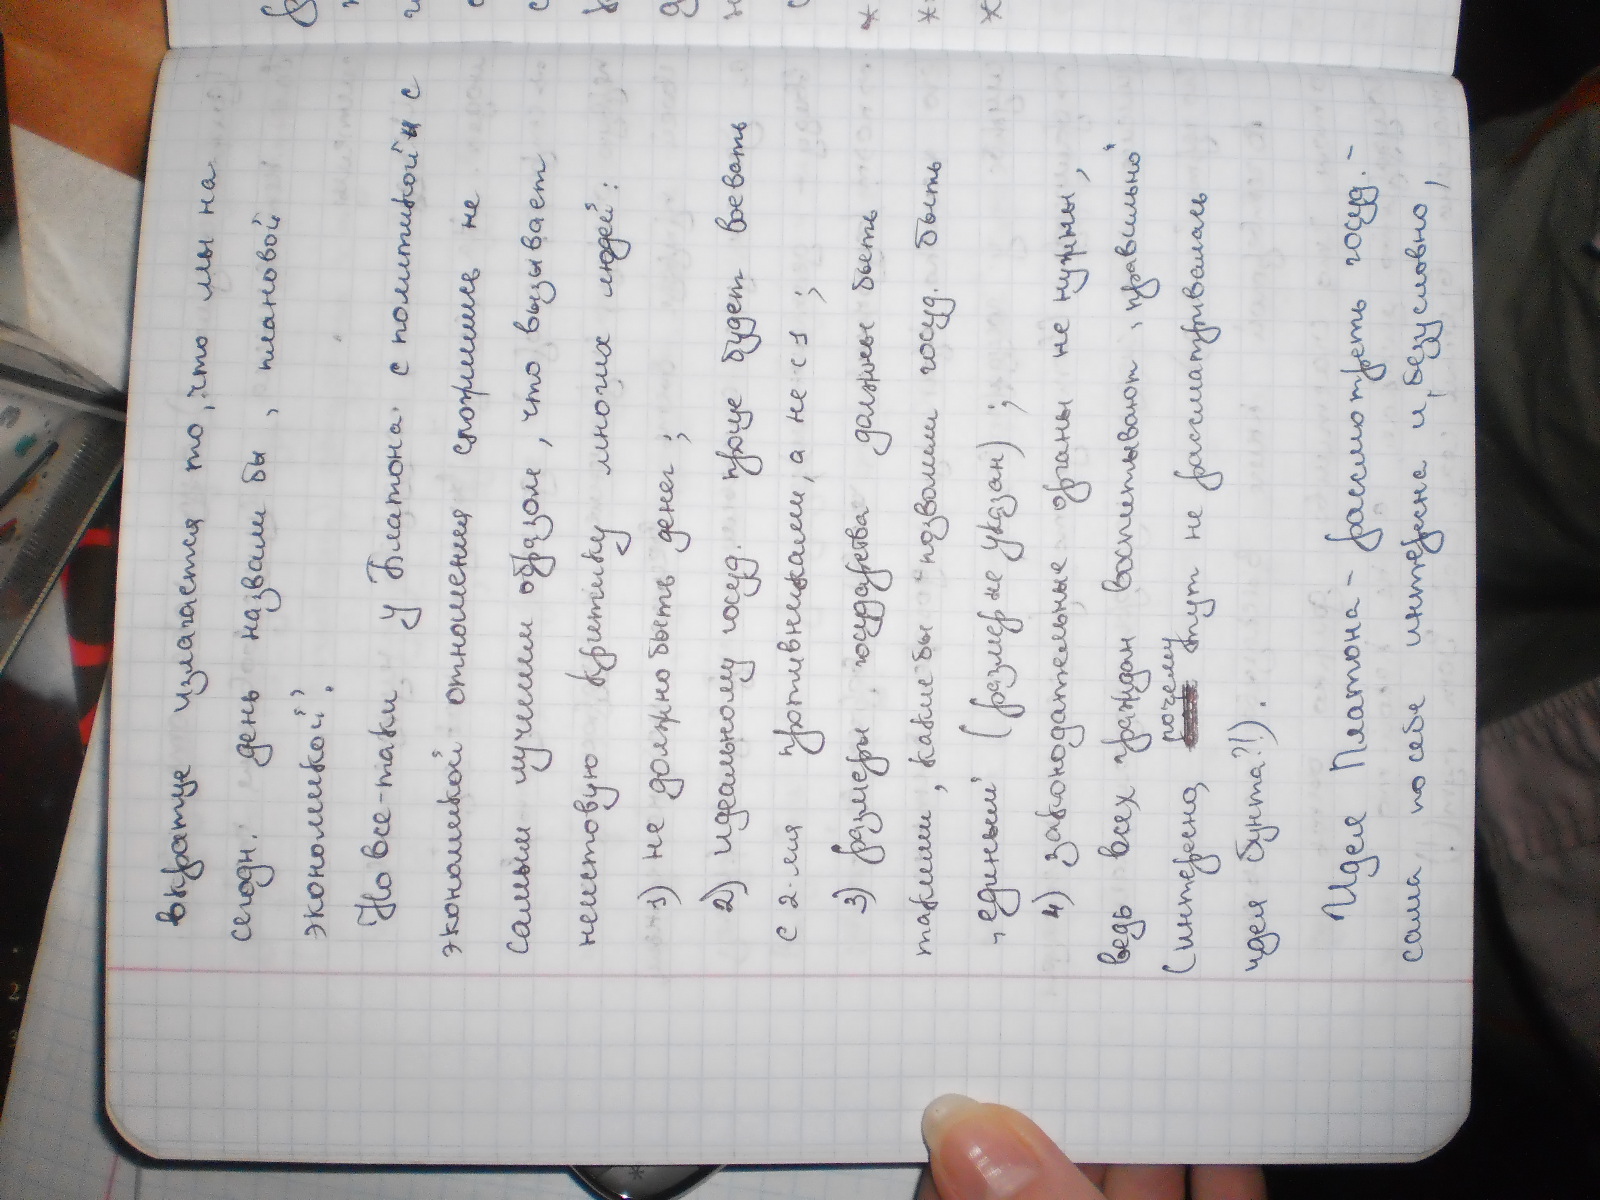 вкратце излагается то, что мы на
сегодн. день назвали бы „плановой
экономикой".
Но все-таки у Платона с политикой и с
экономикой отношения сложились не
самым лучшим образом, что вызывает
неистовую критику многих людей:
1) не должно быть денег;
2) идеальному госуд. проще будет воевать
с 2-мя противниками, а не с 1;
3) размеры государства должны быть
такими, какие бы позволили госуд. быть
„единым" (размер не указан);
4) законодательные органы не нужны,
ведь всех граждан воспитывают „правильно"
(интересно, почему тут не рассматривалась
идея бунта?!).
Идея Платона - рассмотреть госуд. -
сама по себе интересна и, безусловно,